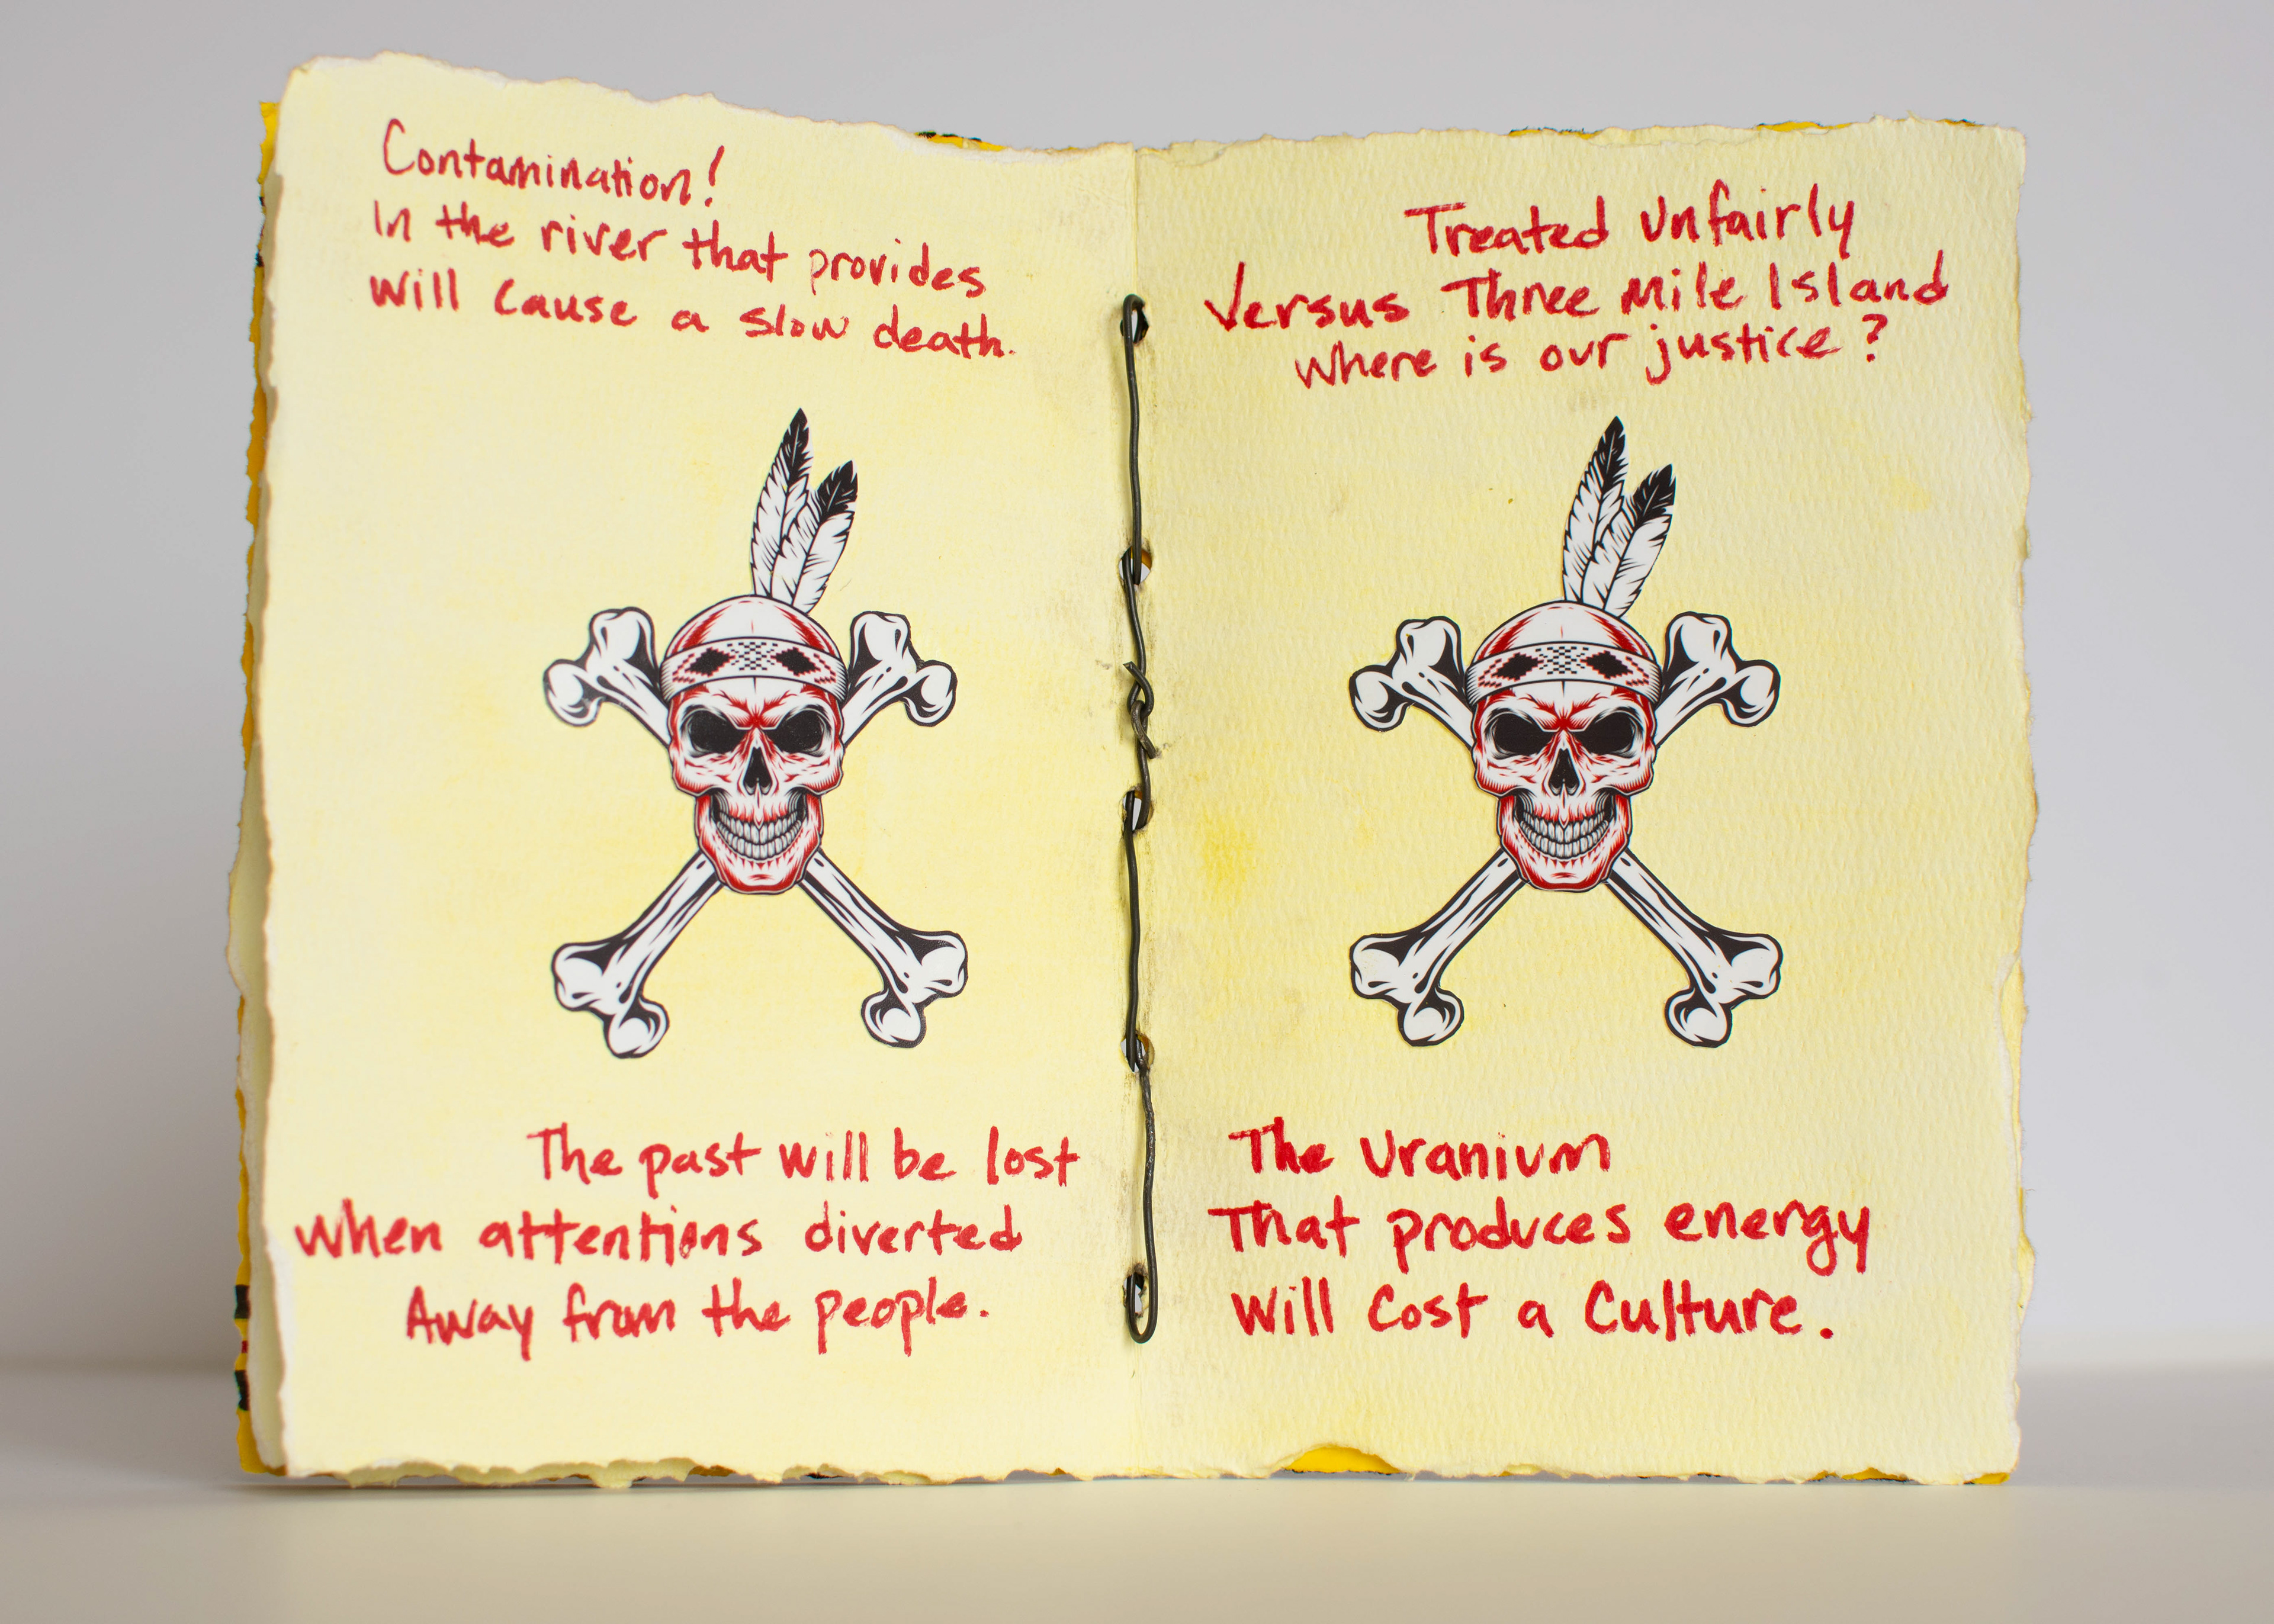 Contamination!
In the river that provides
Will cause a slow death.
The past will be lost
When attentions diverted
Away from the people.
Treated Unfairly
Versus Three Mile Island
Where is our justice?
The Uranium
That produces energy
Will Cost a Culture.